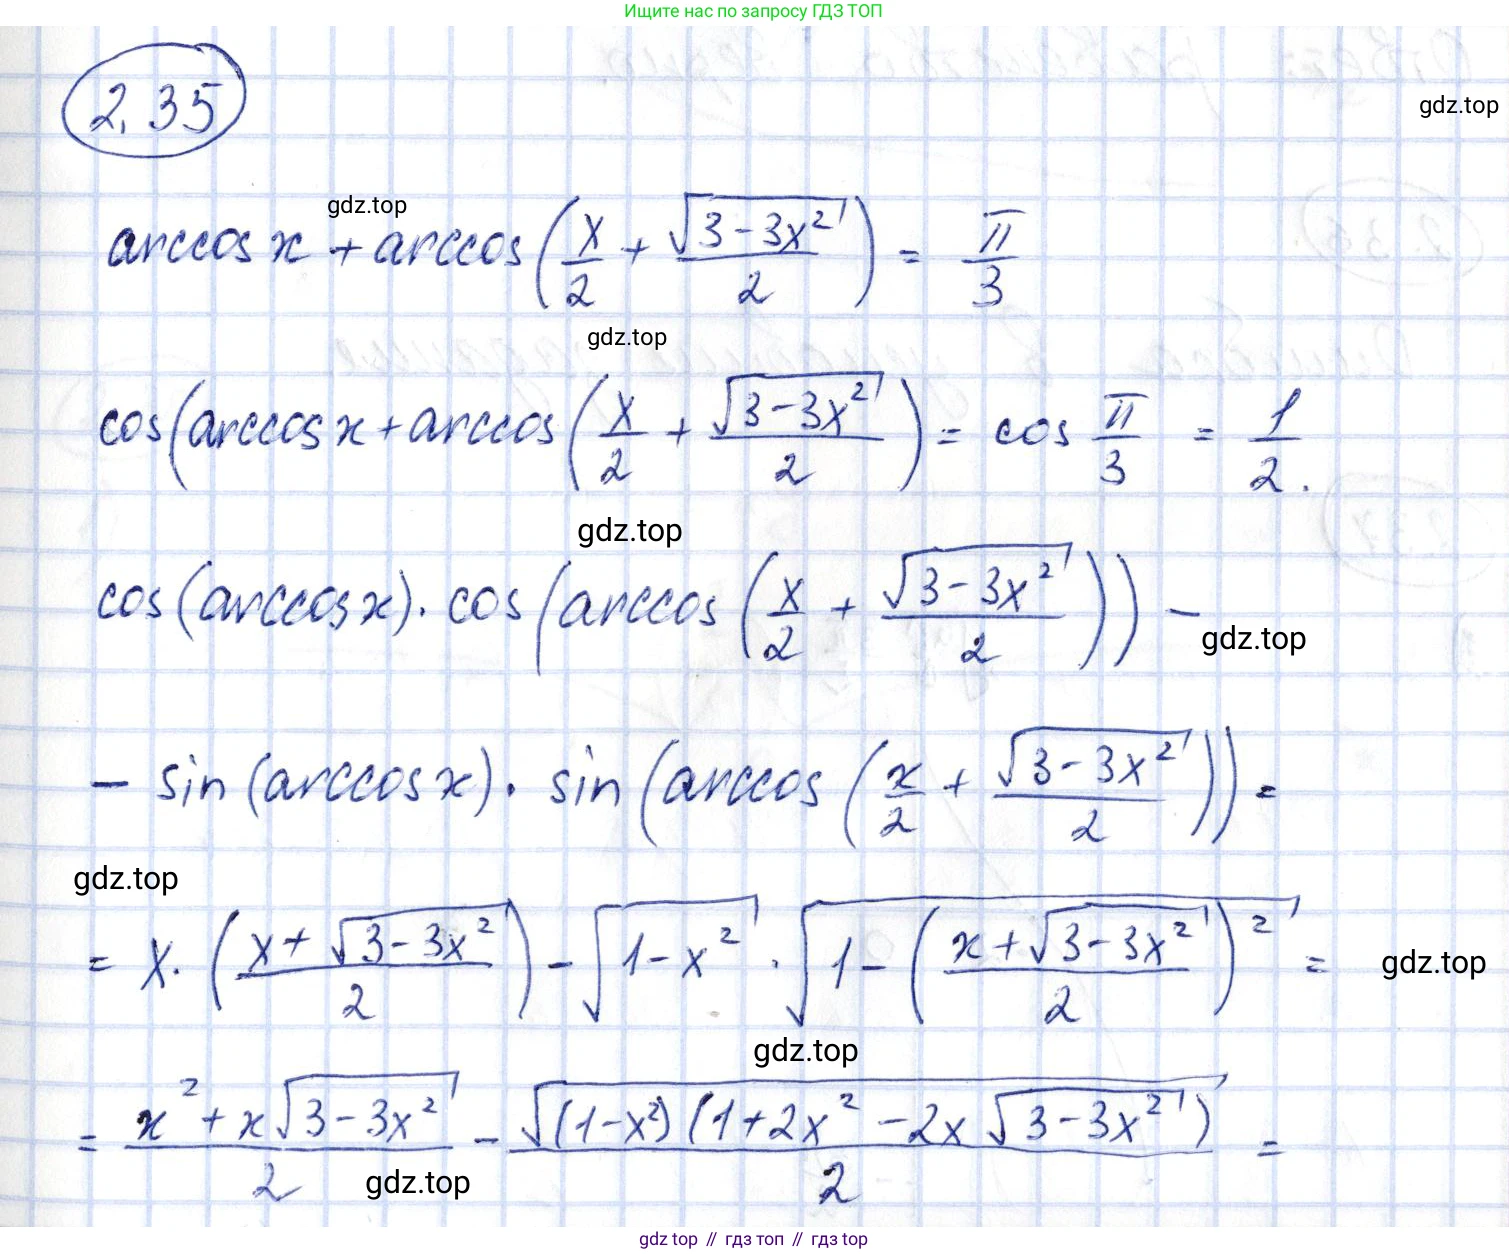 Ищите нас по запросу ГДЗ ТОП
2.35
gdz.top
gdz.top
arccos x + arccos(x/2 + √(3-3x²)/2) = π/3
gdz.top
cos(arccos x + arccos(x/2 + √(3-3x²)/2) = cos π/3 = 1/2.
gdz.top
cos(arccos x) · cos(arccos(x/2 + √(3-3x²)/2)) -
gdz.top
- sin(arccos x) · sin(arccos(x/2 + √(3-3x²)/2)) =
gdz.top
= x · ((x + √(3-3x²))/2) - √(1-x²) · √(1-((x+√(3-3x²))/2)²) =
gdz.top
gdz.top
= (x² + x√(3-3x²))/2 - √((1-x²)(1+2x² - 2x√(3-3x²)))/2 =
gdz.top
gdz top // гдз топ // gdz top